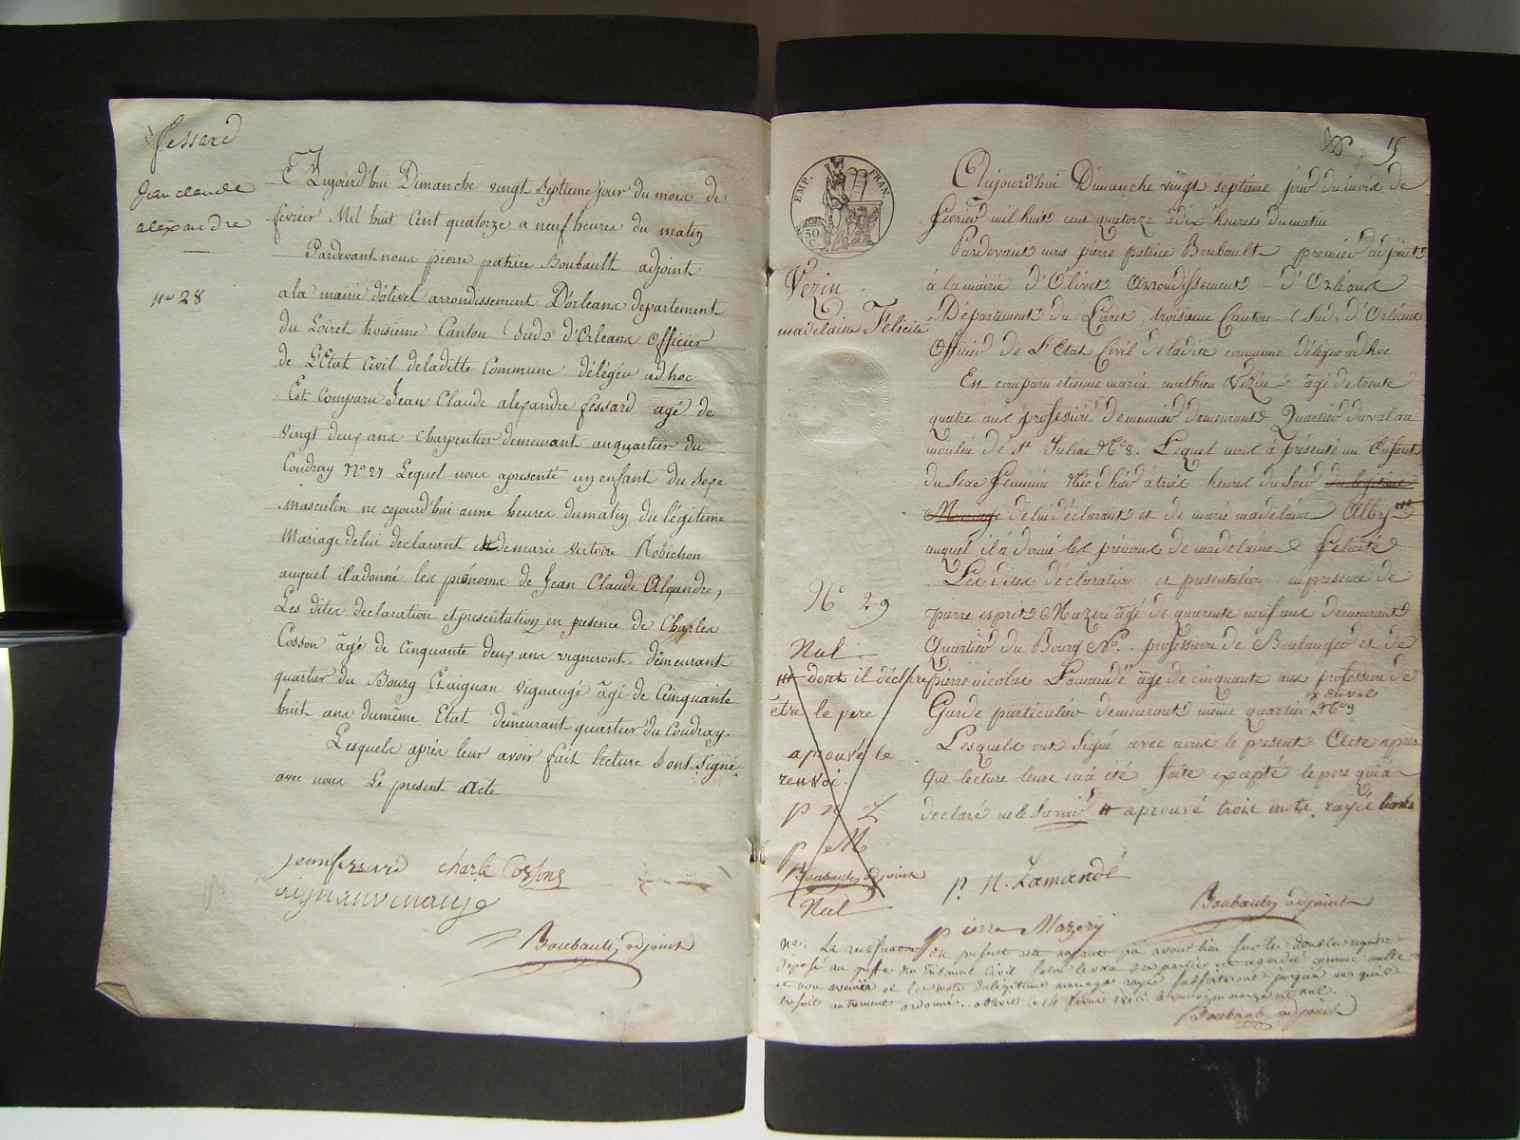 fessard
Jean claude
alexandre
n° 28
Aujourd'hui Dimanche vingt septieme jour du mois de
fevrier Mil huit Cent quatorze a neuf heures du matin
Pardevant nous pierre patrice Boubault adjoint
a la mairie d'olivet arrondissement D'orleans departement
du Loiret troisieme Canton (sud) d'Orleans officier
de L'Etat Civil de laditte Commune délégué ad hoc
Est Comparu Jean Claude alexandre fessard agé de
vingt deux ans charpentier demeurant au quartier du
Coudray N° 27 Lequel nous apresenté un enfant du sexe
Masculin ne cejourd'hui a une heures du matin du légitime
Mariage de lui declarant et de marie victoire Robichon
auquel il a donné les prénoms de Jean Claude Alexandre,
Les dites declaration et presentation en presence de Charles
Cosson âgé de Cinquante deux ans vigneront demeurant
quartier du Bourg Et aignan vignaugé âgé de Cinquante
huit ans du même Etat demeurant quartier du Coudray.
Lesquels après leur avoir fait lecture Sont Signé
avec nous Le present acte
jean fessard charle Cossons
Boubault, adjoint
15
EMP. FRAN.
50
Vezin
madelaine Félicité
N° 29
Nul
dont il déclare
être le pere
aprouvé le
renvoi
p n L
p M
Boubault adjoint
Nul
Aujourd'hui Dimanche vingt septieme jour du mois de
fevrier mil huit cent quatorze à dix heures du matin
Pardevant nous pierre patrice Boubault premier adjoint
à la mairie d'Olivet Arrondissement d'Orléans
Département du Loiret, troisieme Canton (Sud) d'Orléans
Officier de l'Etat Civil de ladite commune délégué ad hoc
Est comparu etienne marie mathieu Vézin âgé de trente
quatre ans profession de meunier demeurant Quartier du val au
moulin de St Julien N° 8. Lequel nous à présenté un Enfant
du Sexe feminin Née d'hier à trois heures du Soir du légitime
Mariage de lui déclarant et de marie madelaine Alby
auquel il à donné les prénoms de madelaine félicité
Les dites déclaration et presentation en presence de
pierre esprit Mazery âgé de quarante neuf ans demeurant
Quartier du Bourg N° profession de Boulanger et de
pierre nicolas Lamandé âgé de cinquante ans profession de
Garde particulier demeurant même quartier N° 9
Lesquels ont Signé avec nous le present Acte après
que lecture leur en à été faite excepté le pere qui à
declaré ne le Savoir aprouvé trois mots rayés
p. n. Lamandé
Boubault, adjoint
pierre Mazery
Boubault adjoint